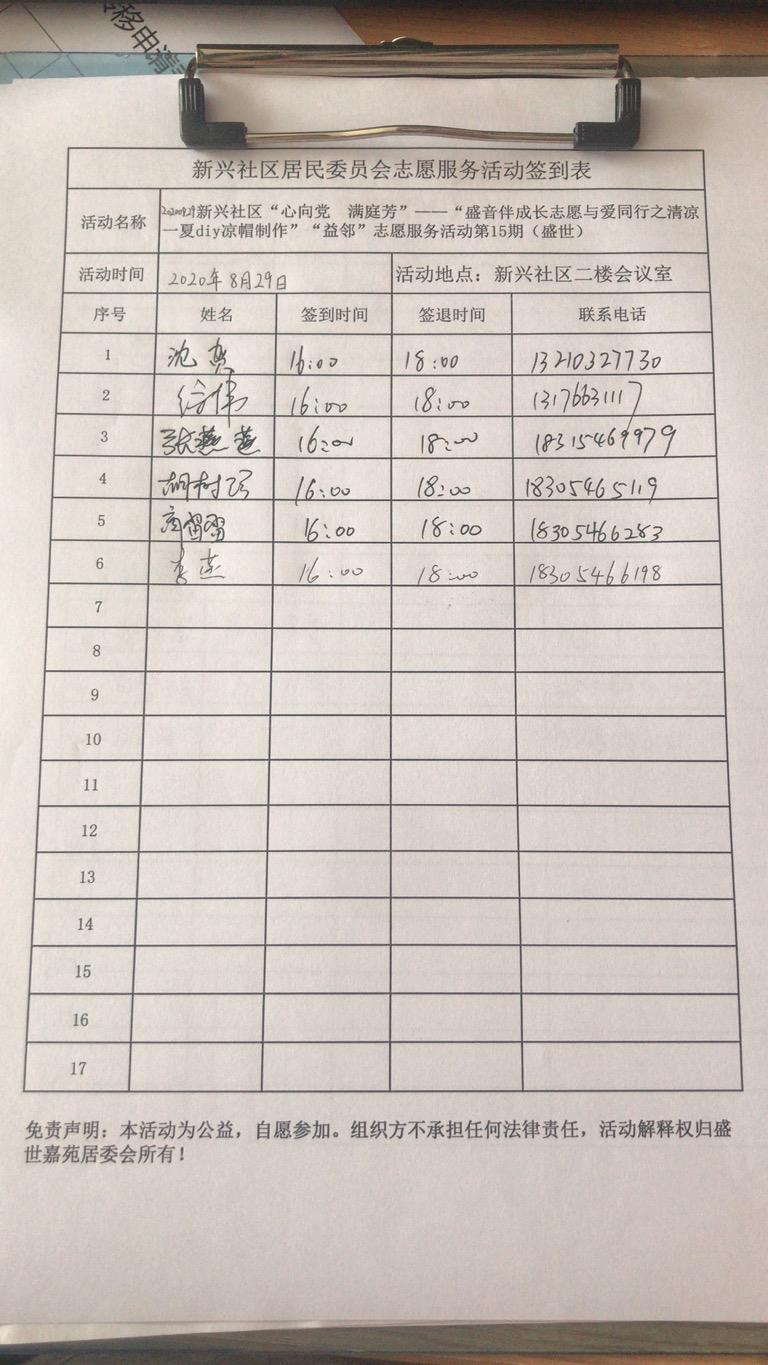 移申请
新兴社区居民委员会志愿服务活动签到表
活动名称
新兴社区“心向党 满庭芳”——“盛音伴成长志愿与爱同行之清凉
一夏diy凉帽制作”“益邻”志愿服务活动第15期（盛世）
活动时间 2020年8月29日 活动地点：新兴社区二楼会议室
序号 姓名 签到时间 签退时间 联系电话
1 16:00 18:00 13210327730
2 徐伟 16:00 18:00 13176631117
3 张燕燕 16:00 18:00 18315469979
4 16:00 18:00 18305465119
5 16:00 18:00 18305466283
6 李燕 16:00 18:00 18305466198
7
8
9
10
11
12
13
14
15
16
17
免责声明：本活动为公益，自愿参加。组织方不承担任何法律责任，活动解释权归盛
世嘉苑居委会所有！